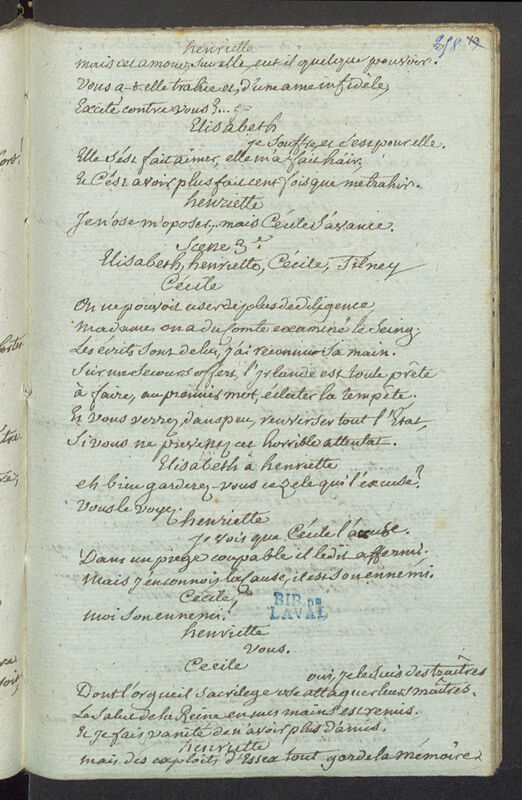 258
henriette
mais cet amour, sur elle, eut il quelque pouvoir.
Vous a-t-elle trahie et, d'une ame infidèle,
Excité contre vous?...
Elisabeth
je souffre, et c'est pour elle.
Elle s'est fait aimer, elle m'a fait haïr,
Et c'est avoir plus fait cent fois que me trahir.
henriette
Je n'ose m'oposer... mais Cécile s'avance.
Scene 3e
Elisabeth, henriette, Cécile, Tilney
Cécile
On ne pouvoit user de plus de diligence
madame, on a du Comte examiné le Seing;
Les écrits sont de lui, j'ai reconnu sa main.
Sur un secours offert, l'Irlande est toute prête
à faire, au premier mot, éclater la tempête.
Et vous verrez, dans peu, renverser tout l'Etat,
Si vous ne prevenez cet horrible attentat.
Elisabeth à henriette
eh bien garderez vous ce zele qui l'excuse?
Vous le voyez.
henriette
Je vois que Cécile l'accuse.
Dans un piege coupable il le dit affermi.
Mais j'en connois la cause, il est son ennemi.
Cécile
moi son ennemi!
BIB. DE
LAVAL
henriette
Vous.
Cecile
oui, je le suis des traîtres
Dont l'orgueil sacrilege ose attaquer leurs maîtres.
Le salut de la Reine en mes mains est remis.
Et je fais vanité de n'avoir plus d'amis.
henriette
mais des exploits d'Essex tout garde la mémoire